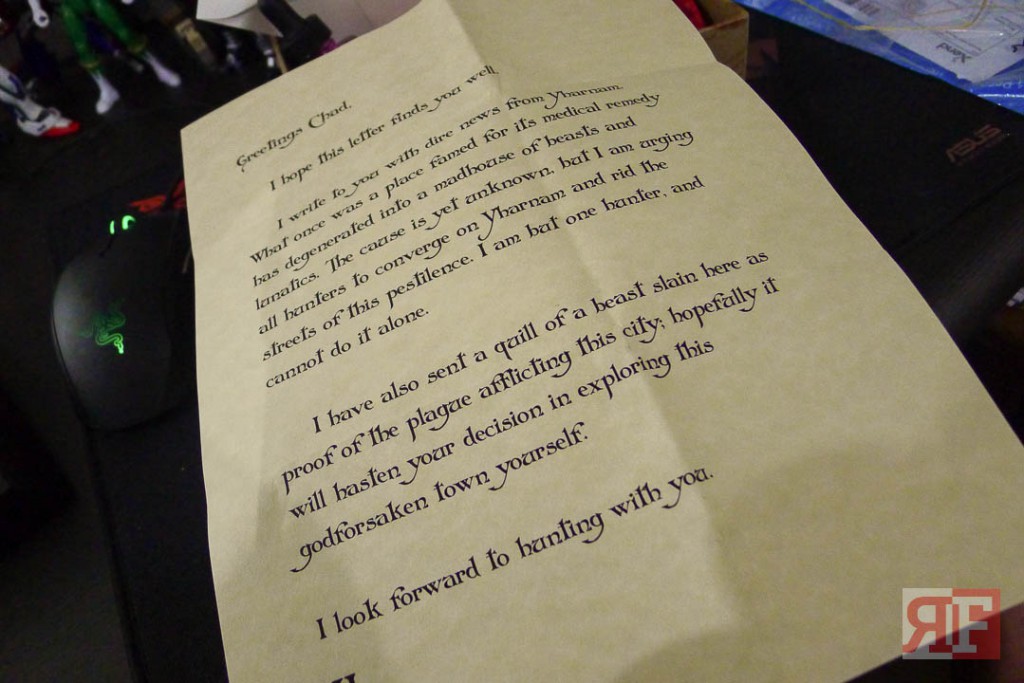 Greetings Chad,
I hope this letter finds you well.
I write to you with dire news from Yharnam.
What once was a place famed for its medical remedy
has degenerated into a madhouse of beasts and
lunatics. The cause is yet unknown, but I am urging
all hunters to converge on Yharnam and rid the
streets of this pestilence. I am but one hunter, and
cannot do it alone.
I have also sent a quill of a beast slain here as
proof of the plague afflicting this city; hopefully it
will hasten your decision in exploring this
godforsaken town yourself.
I look forward to hunting with you.
ASUS
Xend
RF